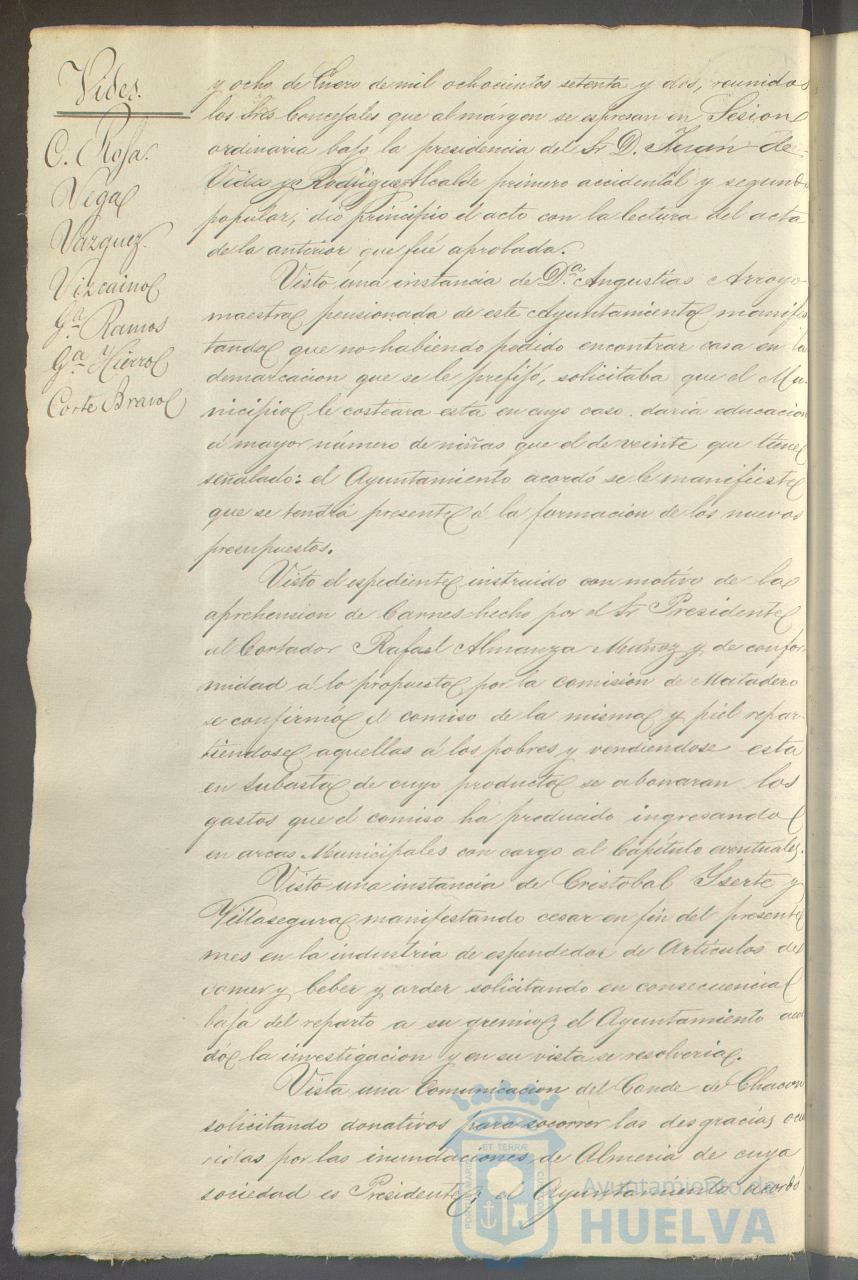 Vides.
C. Rosa.
Vega
Vazquez.
Vizcaino
Gª Ramos
Gª Hierro
Corte Bravo
y ocho de Enero de mil ochocientos setenta y dos, reunidos
los Sres Concejales que al márgen se espresan en Sesion
ordinaria bajo la presidencia del Sr D. Juan de
Vides y Rodriguez Alcalde primero accidental y segundo
popular, dió principio el acto con la lectura del acta
de la anterior que fué aprobada.
Visto una instancia de Dª. Angustias Arroyo
maestra pensionada de este Ayuntamiento manifes
tando que no habiendo podido encontrar casa en la
demarcacion que se le prefijó, solicitaba que el Mu-
nicipio le costeara esta en cuyo caso daria educacion
á mayor número de niñas que el de veinte que tiene
señalado: el Ayuntamiento acordó se le manifieste
que se tendrá presente á la formacion de los nuevos
presupuestos.
Visto el espediente instruido con motivo de la
aprehension de Carnes hecho por el Sr Presidente
al Cortador Rafael Almanza Muñoz y de confor
midad á lo propuesto por la comision de Matadero
se confirmó el comiso de la misma y piel repar-
tiendose aquellas á los pobres y vendiendose esta
en subasta de cuyo producto se abonaran los
gastos que el comiso há producido ingresando
en arcas Municipales con cargo al Capítulo eventuales.
Visto una instancia de Cristobal Yserte y
Villasegura manifestando cesar en fin del presente
mes en la industria de espendedor de Artículos de
comer y beber y arder solicitando en consecuencia
baja del reparto a su gremio; el Ayuntamiento acor
dó la investigacion y en su vista se resolveria.
Vista una Comunicacion del Conde de Chacon
solicitando donativos para socorrer las desgracias ocu
rridas por las inundaciones de Almeria de cuya
sociedad es Presidente; el Ayuntamiento acordó
Ayuntamiento de
HUELVA
ET TERRÆ
PORTUS MARIS
CUSTODIA